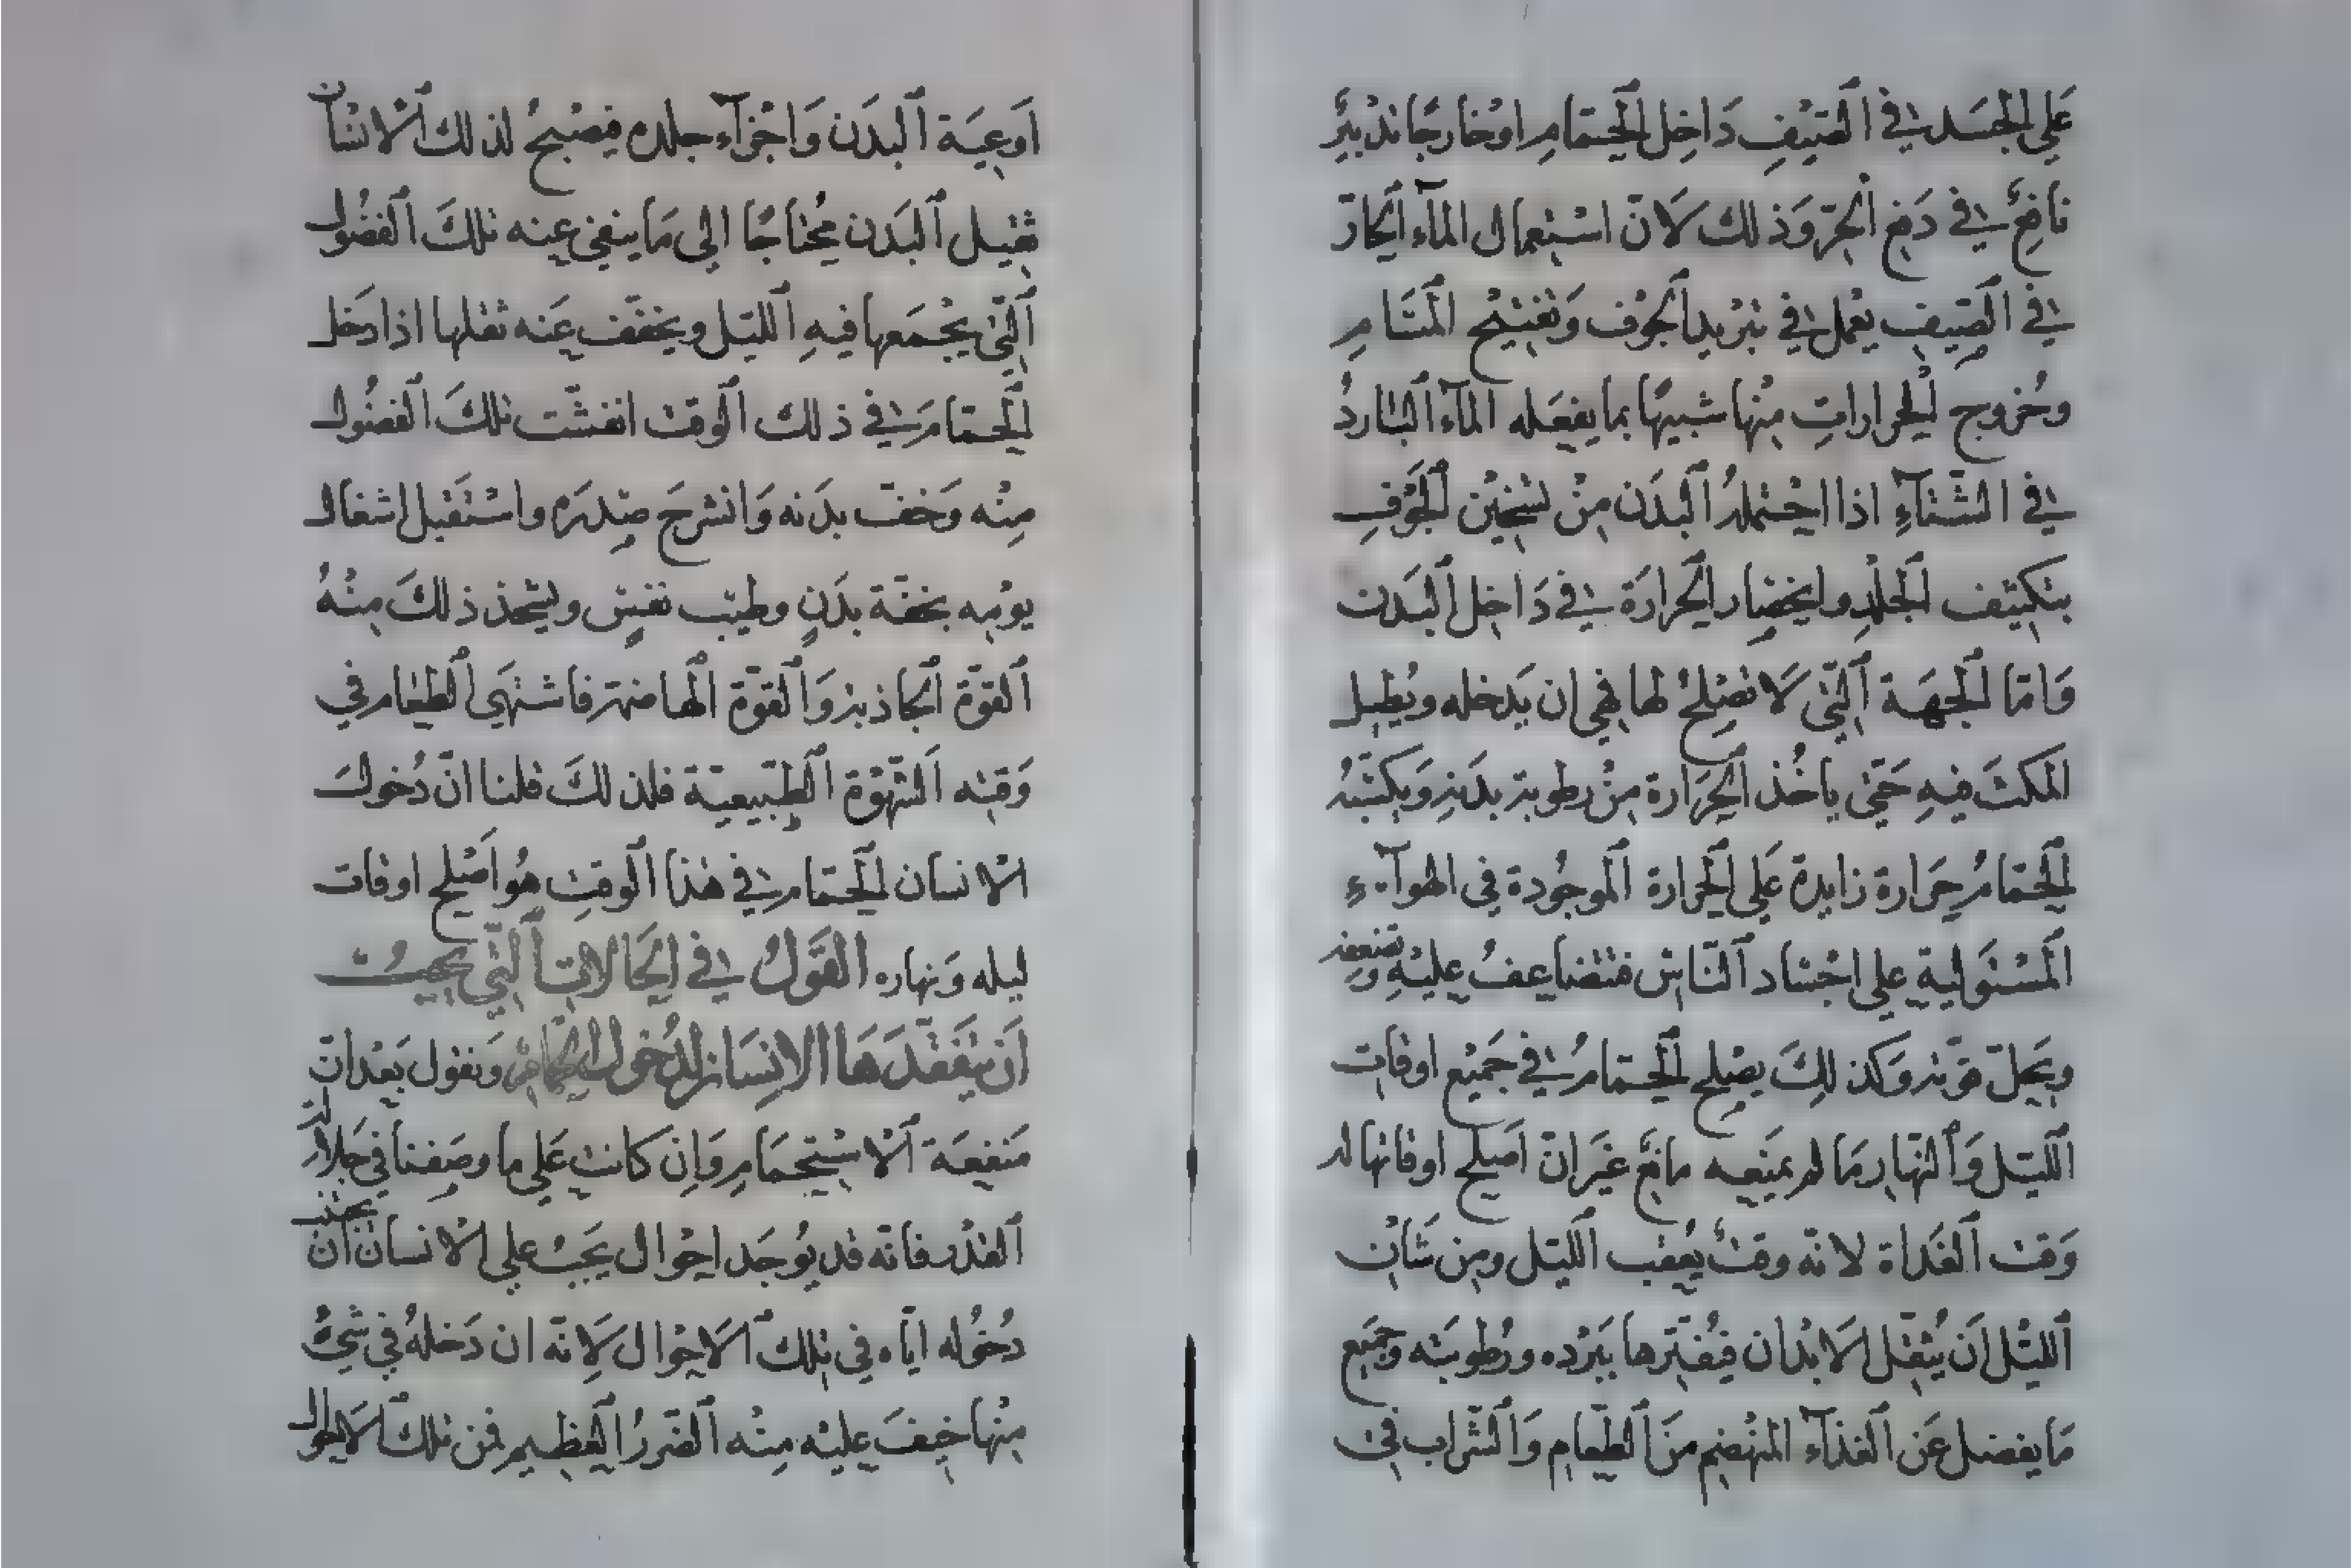 عَلي الجسَد في الصَيْفِ دَاخِل الحَمّامِ اوْخارجًا تدْبيرٌ
نافِعٌ في دَفع الحَرّ وَذلك لَانّ اسْتِعمال المآء الحارّ
في الصّيفِ يعْمل في تبْريد الجوْف وَتفتيْح المسَامِ
وخُروج الحراراتِ مِنْها شبيهًا بما يفعَله المآء البَاردُ
في الشّتآءِ اذا احْتملهُ البَدَن مِنْ تسْخيْن الجَوْفِ
بتكثيف الجلْدِ وانحِصَار الحَرارَة في دَاخل البَدَن
وَامّا الجهَة الّتي لَا تصْلحُ لها فهي ان يَدخله ويُطيل
المكثَ فيهِ حَتّى ياخُذ الحَرَارة مِنْ رطوبة بدَنهِ وَيكسّبهُ
الحَمّامُ حَرَارة زايدةً عَلي الحَرارة الموجُودة في الهوآءِ
المسْتَولية علي اجْسَاد النّاس فتتضاعفُ عليْهِ وتضعفه
ويَحلّ قوّته وَكذلِكَ يصْلح الحَمّامُ في جَميْع اوقاتِ
الليْل وَالنّهارِ مَا لم يمنَعه مانعٌ غيَر انّ اصْلح اوقاتها له
وَقت الغَداة لانّه وقتٌ يُعقب الليْل ومِن شَأنِ
الليْل اَن يُثقّل الابْدان فيُفَتّرها ببَرْده ورُطوبته وجَميع
مَا يفضل عَن الغذآء المنْهضِم مِنَ الطّعام وَالشّراب في
اَوعِيَة البدَن وَاجْزآء جلده فيصْبحُ لذلك الانسَان
ثقيل البَدَن مُحتاجًا الي مَا ينفي عنه تلكَ الفضُول
الّتي يجْمَعها فيهِ الليْل ويخفّف عَنه ثقلها اذا دَخل
الحَمّامَ في ذلك الوقت انفشّت تلكَ الفضُول
مِنْه وَخفّ بدَنه وَانشرحَ صَدرَه واسْتَقبل اشغال
يوْمِه بخفّة بدَنٍ وطيْب نفسٍ ويشحذ ذلكَ مِنْهُ
القوّة الجاذبة وَالقوّة الهاضمة فاشتهَى الطّعام في
وَقته الشهْوَة الطّبيعيّة فلذلكَ قلنا انّ دُخولَ
الانسان الحَمّام في هذا الوقتِ هُو اَصْلح اوقات
ليله وَنهاره القَوْلُ في الحَالاتِ الّتي يجبُ
اَن يتَفَقّدَهَا الانِسَان لدُخول الحمّامِ وَنقول بَعْد انّ
مَنفعَة الاسْتِحمَامِ وَاِن كانت عَلي ما وصَفنا في جَلالة
القدْر فانّه قد يُوجَد احْوال يَجبُ علي الانسان ان يجتنب
دُخوله ايّاه في تلك الاحْوال لَانّه ان دَخلهُ في شيْءٍ
مِنْها خِيفَ عليْه مِنْه الضّررُ العظيم فمن تلك الاحْوال